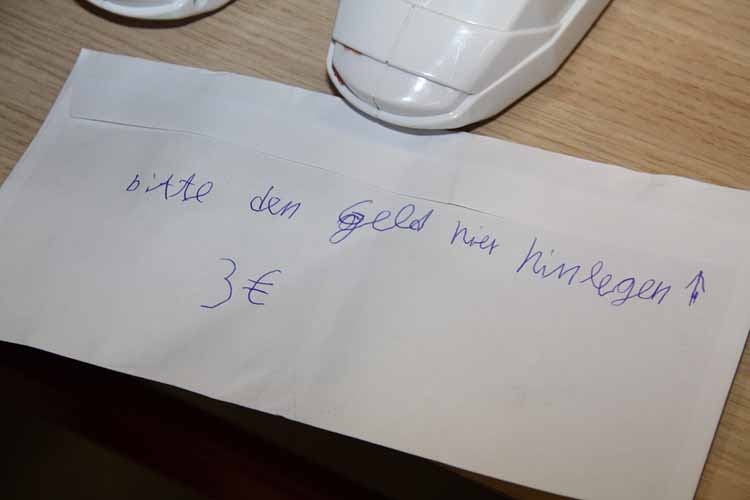 bitte den Geld hier hinlegen ↑
3 €